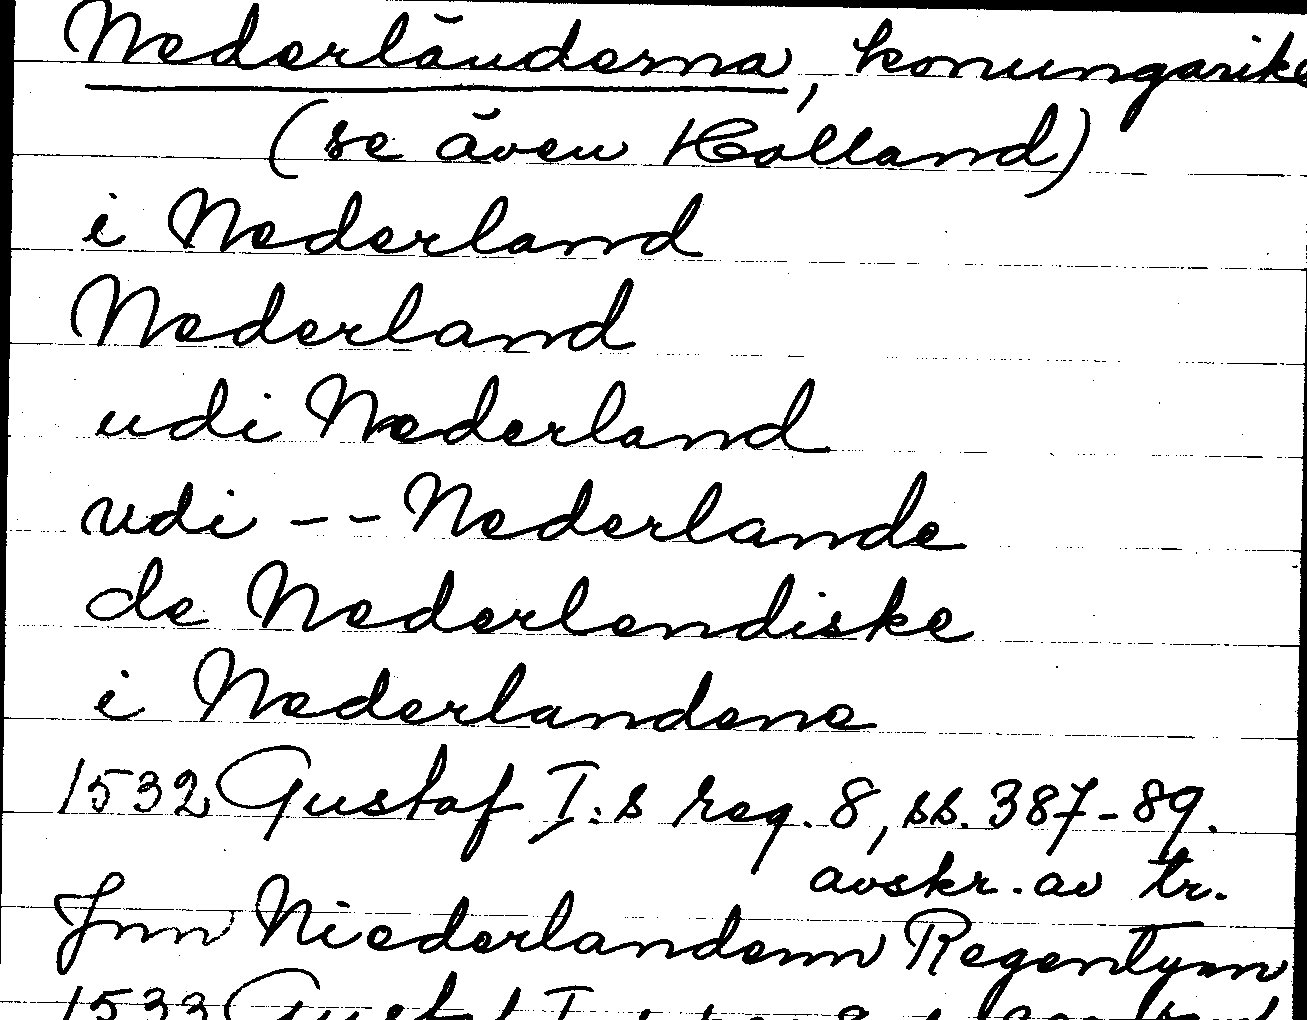 Nederländerna, konungarike
(se även Holland)
i Nederland
Nederland
udi Nederland
vdi -- Nederlande
de Nederlendiske
i Nederlandene
1532 Gustaf I:s reg. 8, ss. 387-89.
avskr. av tr.
Jnn Niederlandenn Regentynn
1533 Gustaf I:s reg. 8